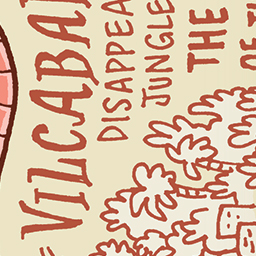 VILCABA
DISAPPEA
JUNGLE
THE
OF T